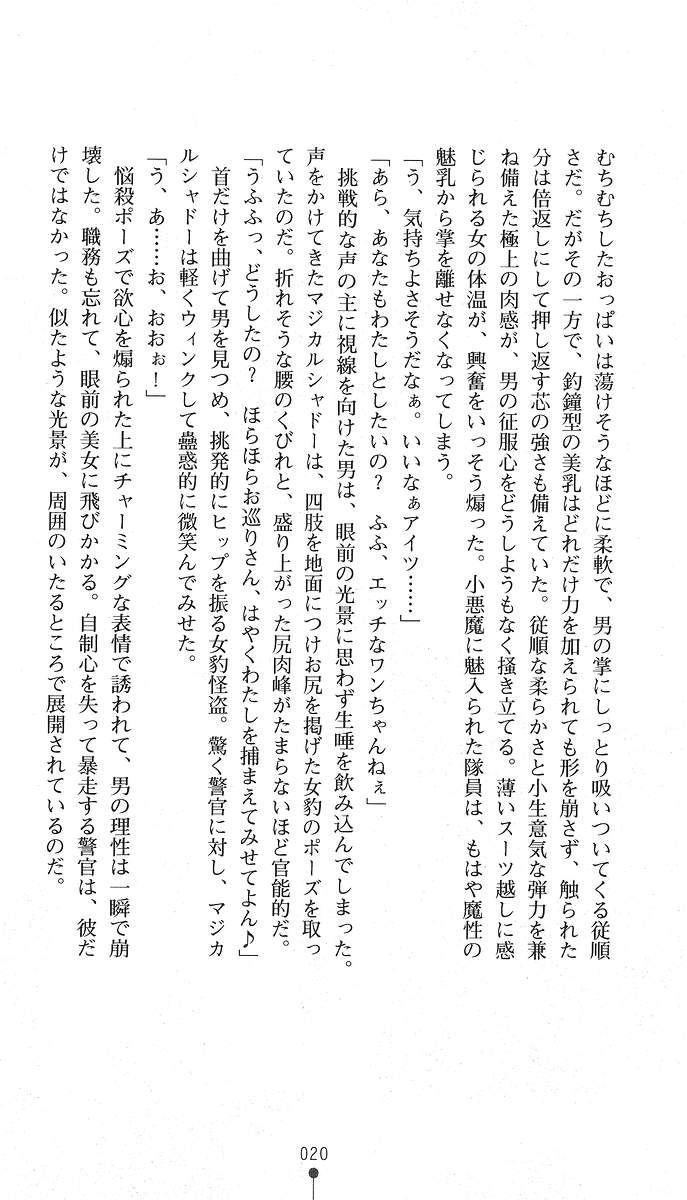 むちむちしたおっぱいは蕩けそうなほどに柔軟で、男の掌にしっとり吸いついてくる従順
さだ。だがその一方で、釣鐘型の美乳はどれだけ力を加えられても形を崩さず、触られた
分は倍返しにして押し返す芯の強さも備えていた。従順な柔らかさと小生意気な弾力を兼
ね備えた極上の肉感が、男の征服心をどうしようもなく掻き立てる。薄いスーツ越しに感
じられる女の体温が、興奮をいっそう煽った。小悪魔に魅入られた隊員は、もはや魔性の
魅乳から掌を離せなくなってしまう。
「う、気持ちよさそうだなぁ。いいなぁアイツ……」
「あら、あなたもわたしとしたいの？　ふふ、エッチなワンちゃんねぇ」
挑戦的な声の主に視線を向けた男は、眼前の光景に思わず生唾を飲み込んでしまった。
声をかけてきたマジカルシャドーは、四肢を地面につけお尻を掲げた女豹のポーズを取っ
ていたのだ。折れそうな腰のくびれと、盛り上がった尻肉峰がたまらないほど官能的だ。
「うふふっ、どうしたの？　ほらほらお巡りさん、はやくわたしを捕まえてみせてよん♪」
首だけを曲げて男を見つめ、挑発的にヒップを振る女豹怪盗。驚く警官に対し、マジカ
ルシャドーは軽くウィンクして蠱惑的に微笑んでみせた。
「う、あ……お、おおぉ！」
悩殺ポーズで欲心を煽られた上にチャーミングな表情で誘われて、男の理性は一瞬で崩
壊した。職務も忘れて、眼前の美女に飛びかかる。自制心を失って暴走する警官は、彼だ
けではなかった。似たような光景が、周囲のいたるところで展開されているのだ。
020